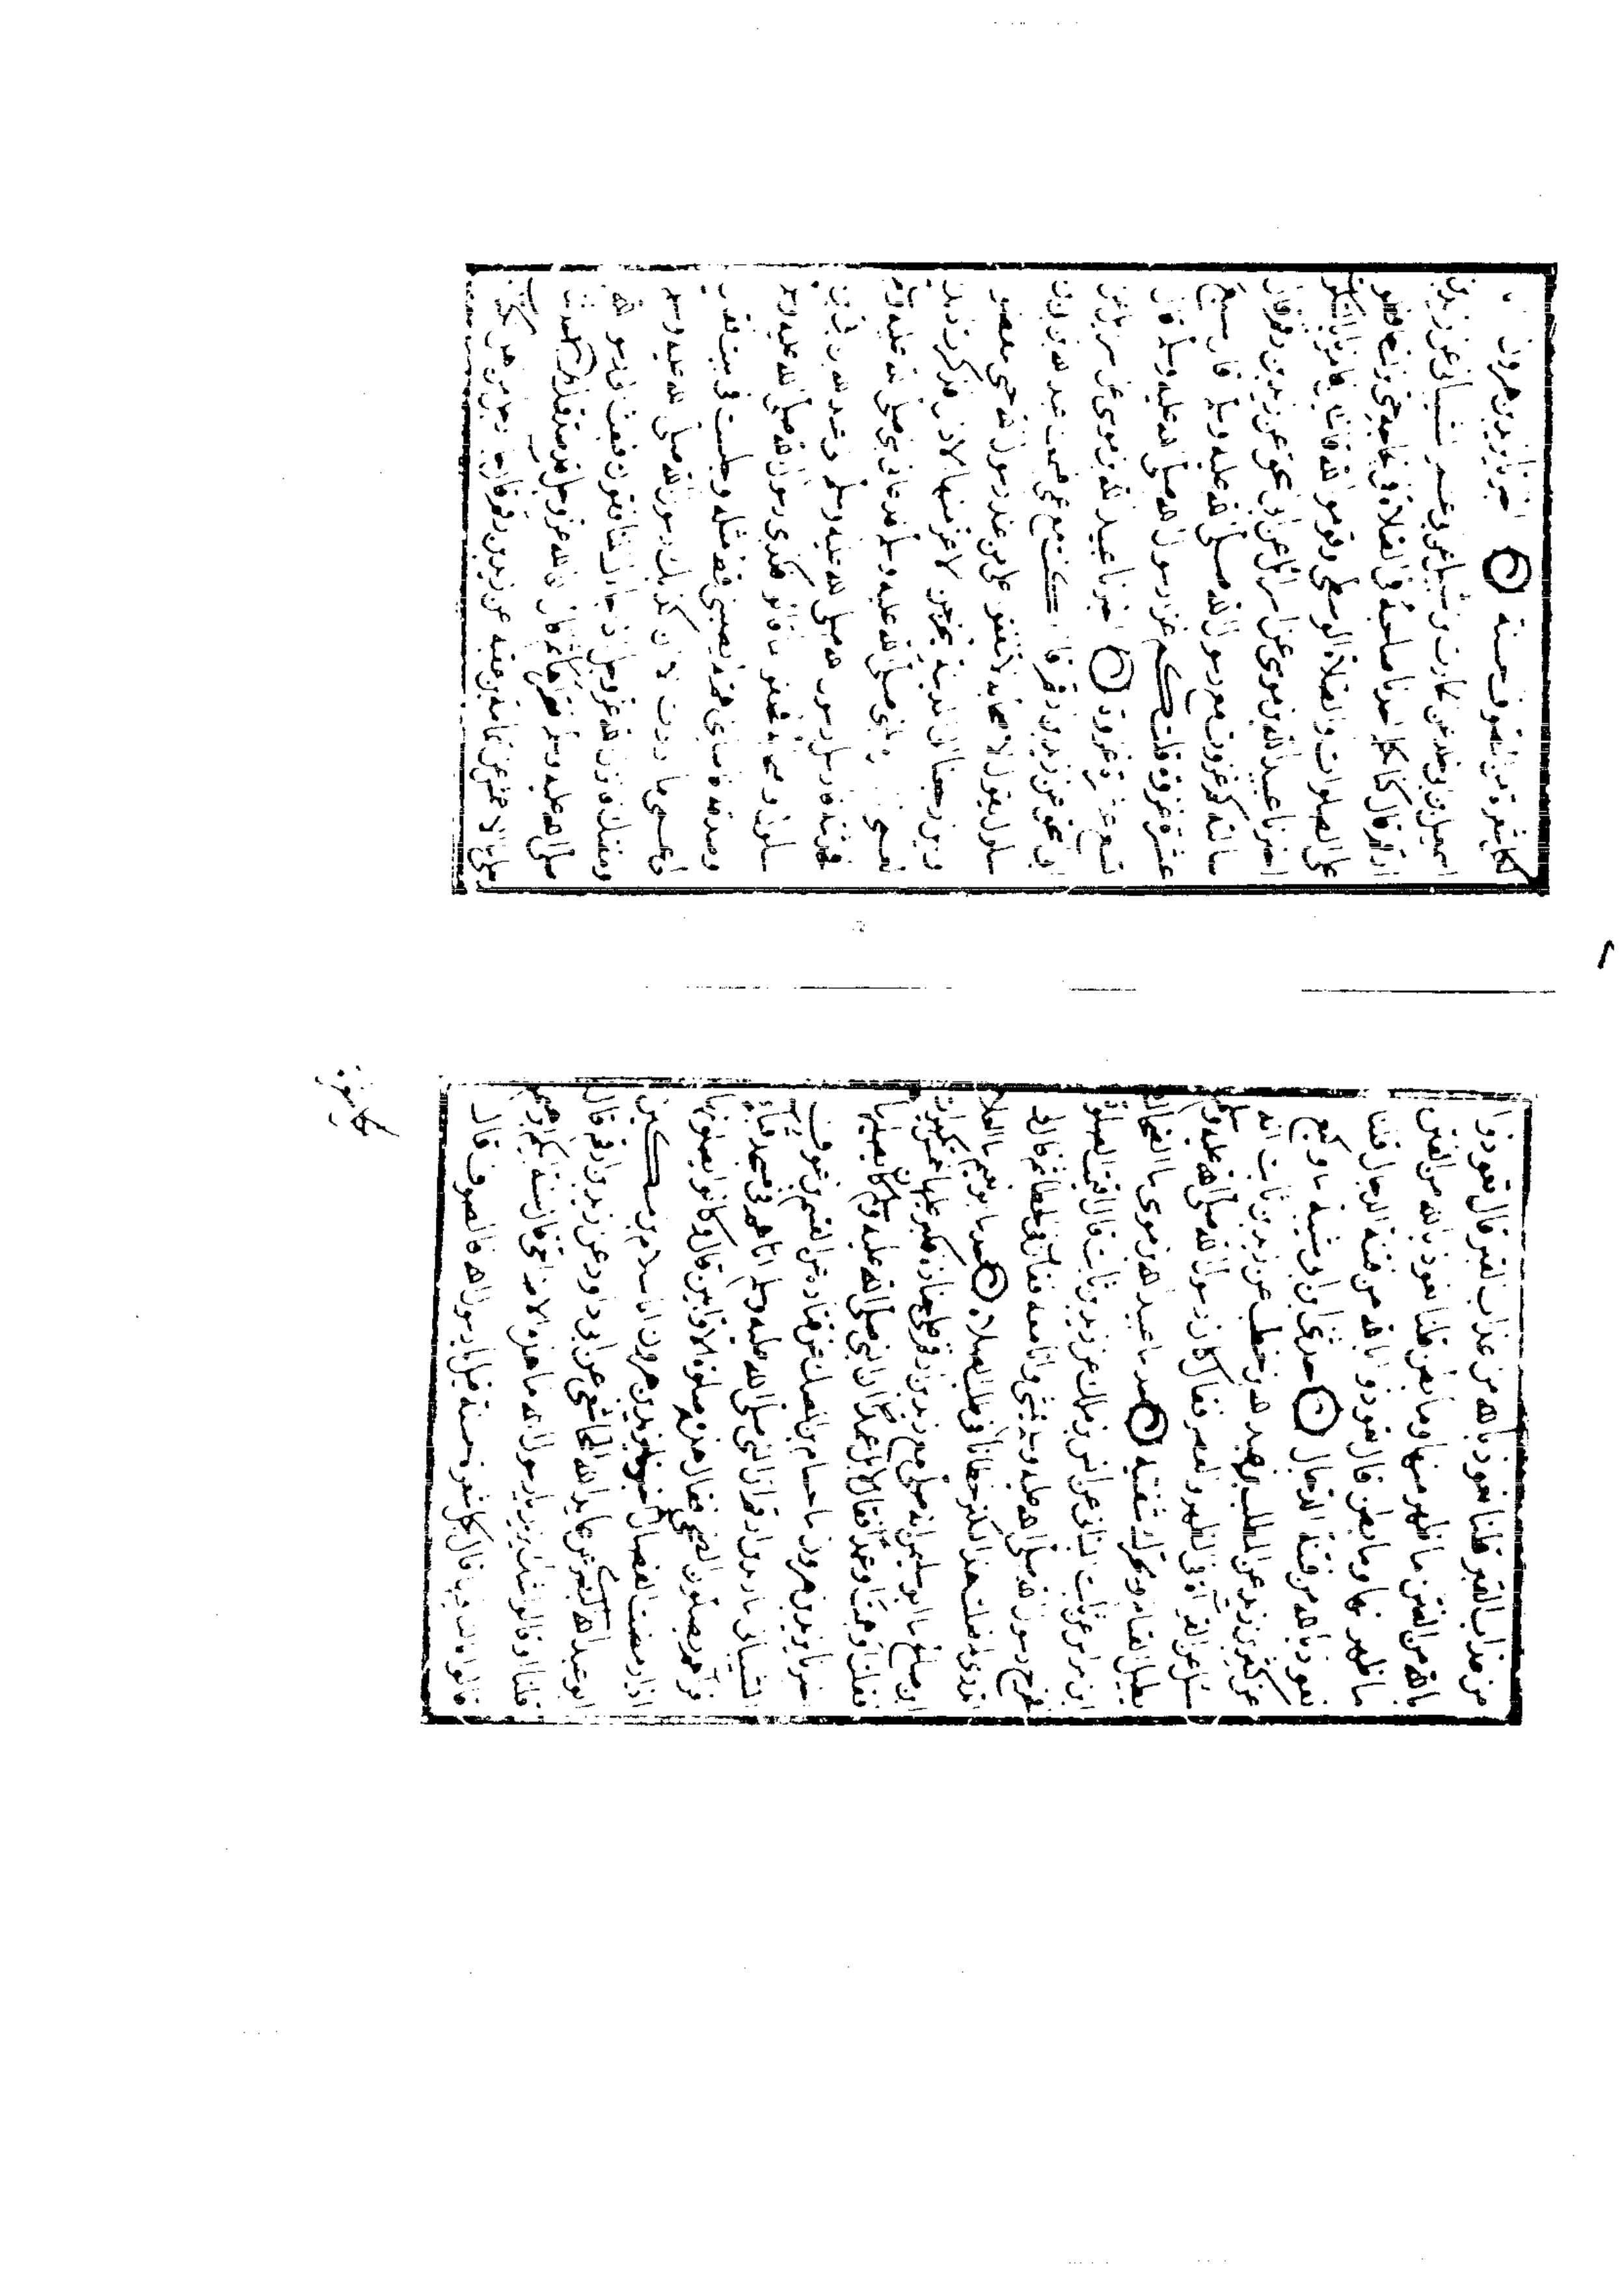 من عذاب القبر قلنا نعوذ بالله من عذاب القبر قال تعوذوا
بالله من الفتن ما ظهر منها وما بطن قلنا نعوذ بالله من الفتن
ما ظهر منها وما بطن قال تعوذوا بالله من فتنة الدجال قلنا
نعوذ بالله من فتنة الدجال حدثني ابن ابي شيبة ثنا وكيع
عن كثير بن زيد عن المطلب بن عبد الله بن حنطب عن زيد بن ثابت انه
سئل عن القراءة في الظهر والعصر فقال كان رسول الله صلى الله عليه وسلم
يطيل القيام ويحرك شفتيه حدثنا عبيد الله بن موسى ثنا الضحاك
ابن نبراس عن ثابت البناني عن انس بن مالك عن زيد بن ثابت قال اقيمت الصلوة
فخرج رسول الله صلى الله عليه وسلم يمشي وانا معه فقارب في الخطا ثم قال لي
اتدري لم فعلت هذا لتكثر خطانا في طلب الصلاة حدثنا ابو نعيم ثنا العلاء
ابن صالح ثنا ابو سليمان انه صلى مع زيد بن ارقم على جنازة فكبر عليها خمس تكبيرات
فقلنا اوهمت او عمدا فقال لا بل عمدا ان النبي صلى الله عليه وسلم كان يصليها
اخبرنا يزيد بن هرون انا حسام بن المصك عن قتادة عن القسم بن عوف
الشيباني ان زيد بن ارقم ان النبي صلى الله عليه وسلم اتاهم في مسجد قباء
فرآهم يصلون الضحى فقال هذه صلوة الاوابين قال وكانوا يصلونها
اذا رمضت الفصال اخبرنا يزيد بن هرون انا سلام بن مسكين
ابو عبد الله عن عايذ الله المجاشعي عن ابي داود عن زيد بن ارقم قال
قلنا او قالوا شك يزيد يا رسول الله ما هذه الاضاحي قال سنة ابيكم ابرهيم
قالوا ما لنا فيها قال بكل شعرة حسنة قيل يا رسول الله فالصوف قال
بكل شعرة
بكل شعرة من الصوف حسنة اخبرنا يزيد بن هرون
اسمعيل بن ابي خالد عن الحارث بن شبيل عن ابي عمرو الشيباني عن زيد بن
ارقم قال كان احدنا يكلم صاحبه في الصلاة في الحاجة حتى نزلت حافظوا
على الصلوات والصلاة الوسطى وقوموا لله قانتين فامرنا بالسكوت
اخبرنا عبيد الله بن موسى عن اسرائيل عن ابي اسحق عن زيد بن ارقم قال
سالته كم غزوت مع رسول الله صلى الله عليه وسلم قال سبع
عشرة غزوة قلت كم غزا رسول الله صلى الله عليه وسلم قال
تسع عشرة غزوة اخبرنا عبيد الله بن موسى عن اسرائيل عن
ابي اسحق عن زيد بن ارقم قال كنت مع عمي فسمعت عبد الله بن ابي بن
سلول يقول لاصحابه لا تنفقوا على من عند رسول الله حتى ينفضوا
ولئن رجعنا الى المدينة ليخرجن الاعز منها الاذل فذكرت ذلك
لعمي النبي صلى الله عليه وسلم فدعاني النبي صلى الله عليه وسلم
فحدثته فارسل رسول الله صلى الله عليه وسلم الى عبد الله بن ابي بن
سلول واصحابه فحلفوا ما قالوا فكذبني رسول الله صلى الله عليه وسلم
وصدقه فاصابني هم لم يصبني قط مثله وجلست في بيتي فقال
لي عمي ما اردت الا ان كذبك رسول الله صلى الله عليه وسلم
ومقتك فانزل الله عز وجل اذا جاءك المنافقون فبعث الي رسول الله
صلى الله عليه وسلم فقراها ثم قال ان الله عز وجل قد صدقك حدثنا
يعلى ثنا الاعمش عن ثمامة بن عقبة عن زيد بن ارقم قال جاء رجل من اهل الكتاب